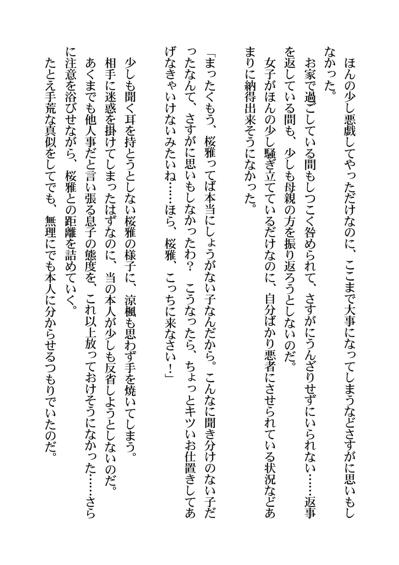 ほんの少し悪戯してやっただけなのに、ここまで大事になってしまうなどさすがに思いもし
なかった。
　お家で過ごしている間もしつこく咎められて、さすがにうんざりせずにいられない……返事
を返している間も、少しも母親の方を振り返ろうとしないのだ。
　女子がほんの少し騒ぎ立てているだけなのに、自分ばかり悪者にさせられている状況などあ
まりに納得出来そうになかった。
「まったくもう、桜雅ってば本当にしょうがない子なんだから。こんなに聞き分けのない子だ
ったなんて、さすがに思いもしなかったわ？　こうなったら、ちょっとキツいお仕置きしてあ
げなきゃいけないみたいね……ほら、桜雅、こっちに来なさい！」
　少しも聞く耳を持とうとしない桜雅の様子に、涼楓も思わず手を焼いてしまう。
　相手に迷惑を掛けてしまったはずなのに、当の本人が少しも反省しようとしないのだ。
　あくまでも他人事だと言い張る息子の態度を、これ以上放っておけそうになかった……さら
に注意を浴びせながら、桜雅との距離を詰めていく。
　たとえ手荒な真似をしてでも、無理にでも本人に分からせるつもりでいたのだ。